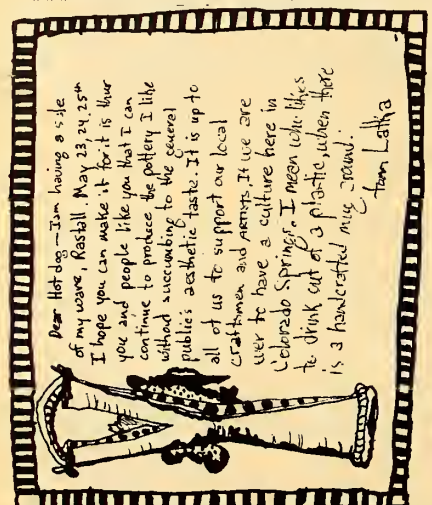 Dear Hot dog - I am having a sale
of my ware, Rastall. May 23, 24, 25th
I hope you can make it for it is thur
you and people like you that I can
continue to produce the pottery I like
without succumbing to the general
public's aesthetic taste. It is up to
all of us to support our local
craftsmen and ARTISTS, If we are
ever to have a culture here in
Colorado Springs. I mean who likes
to drink out of a plastic, when there
is a handcrafted mug around.